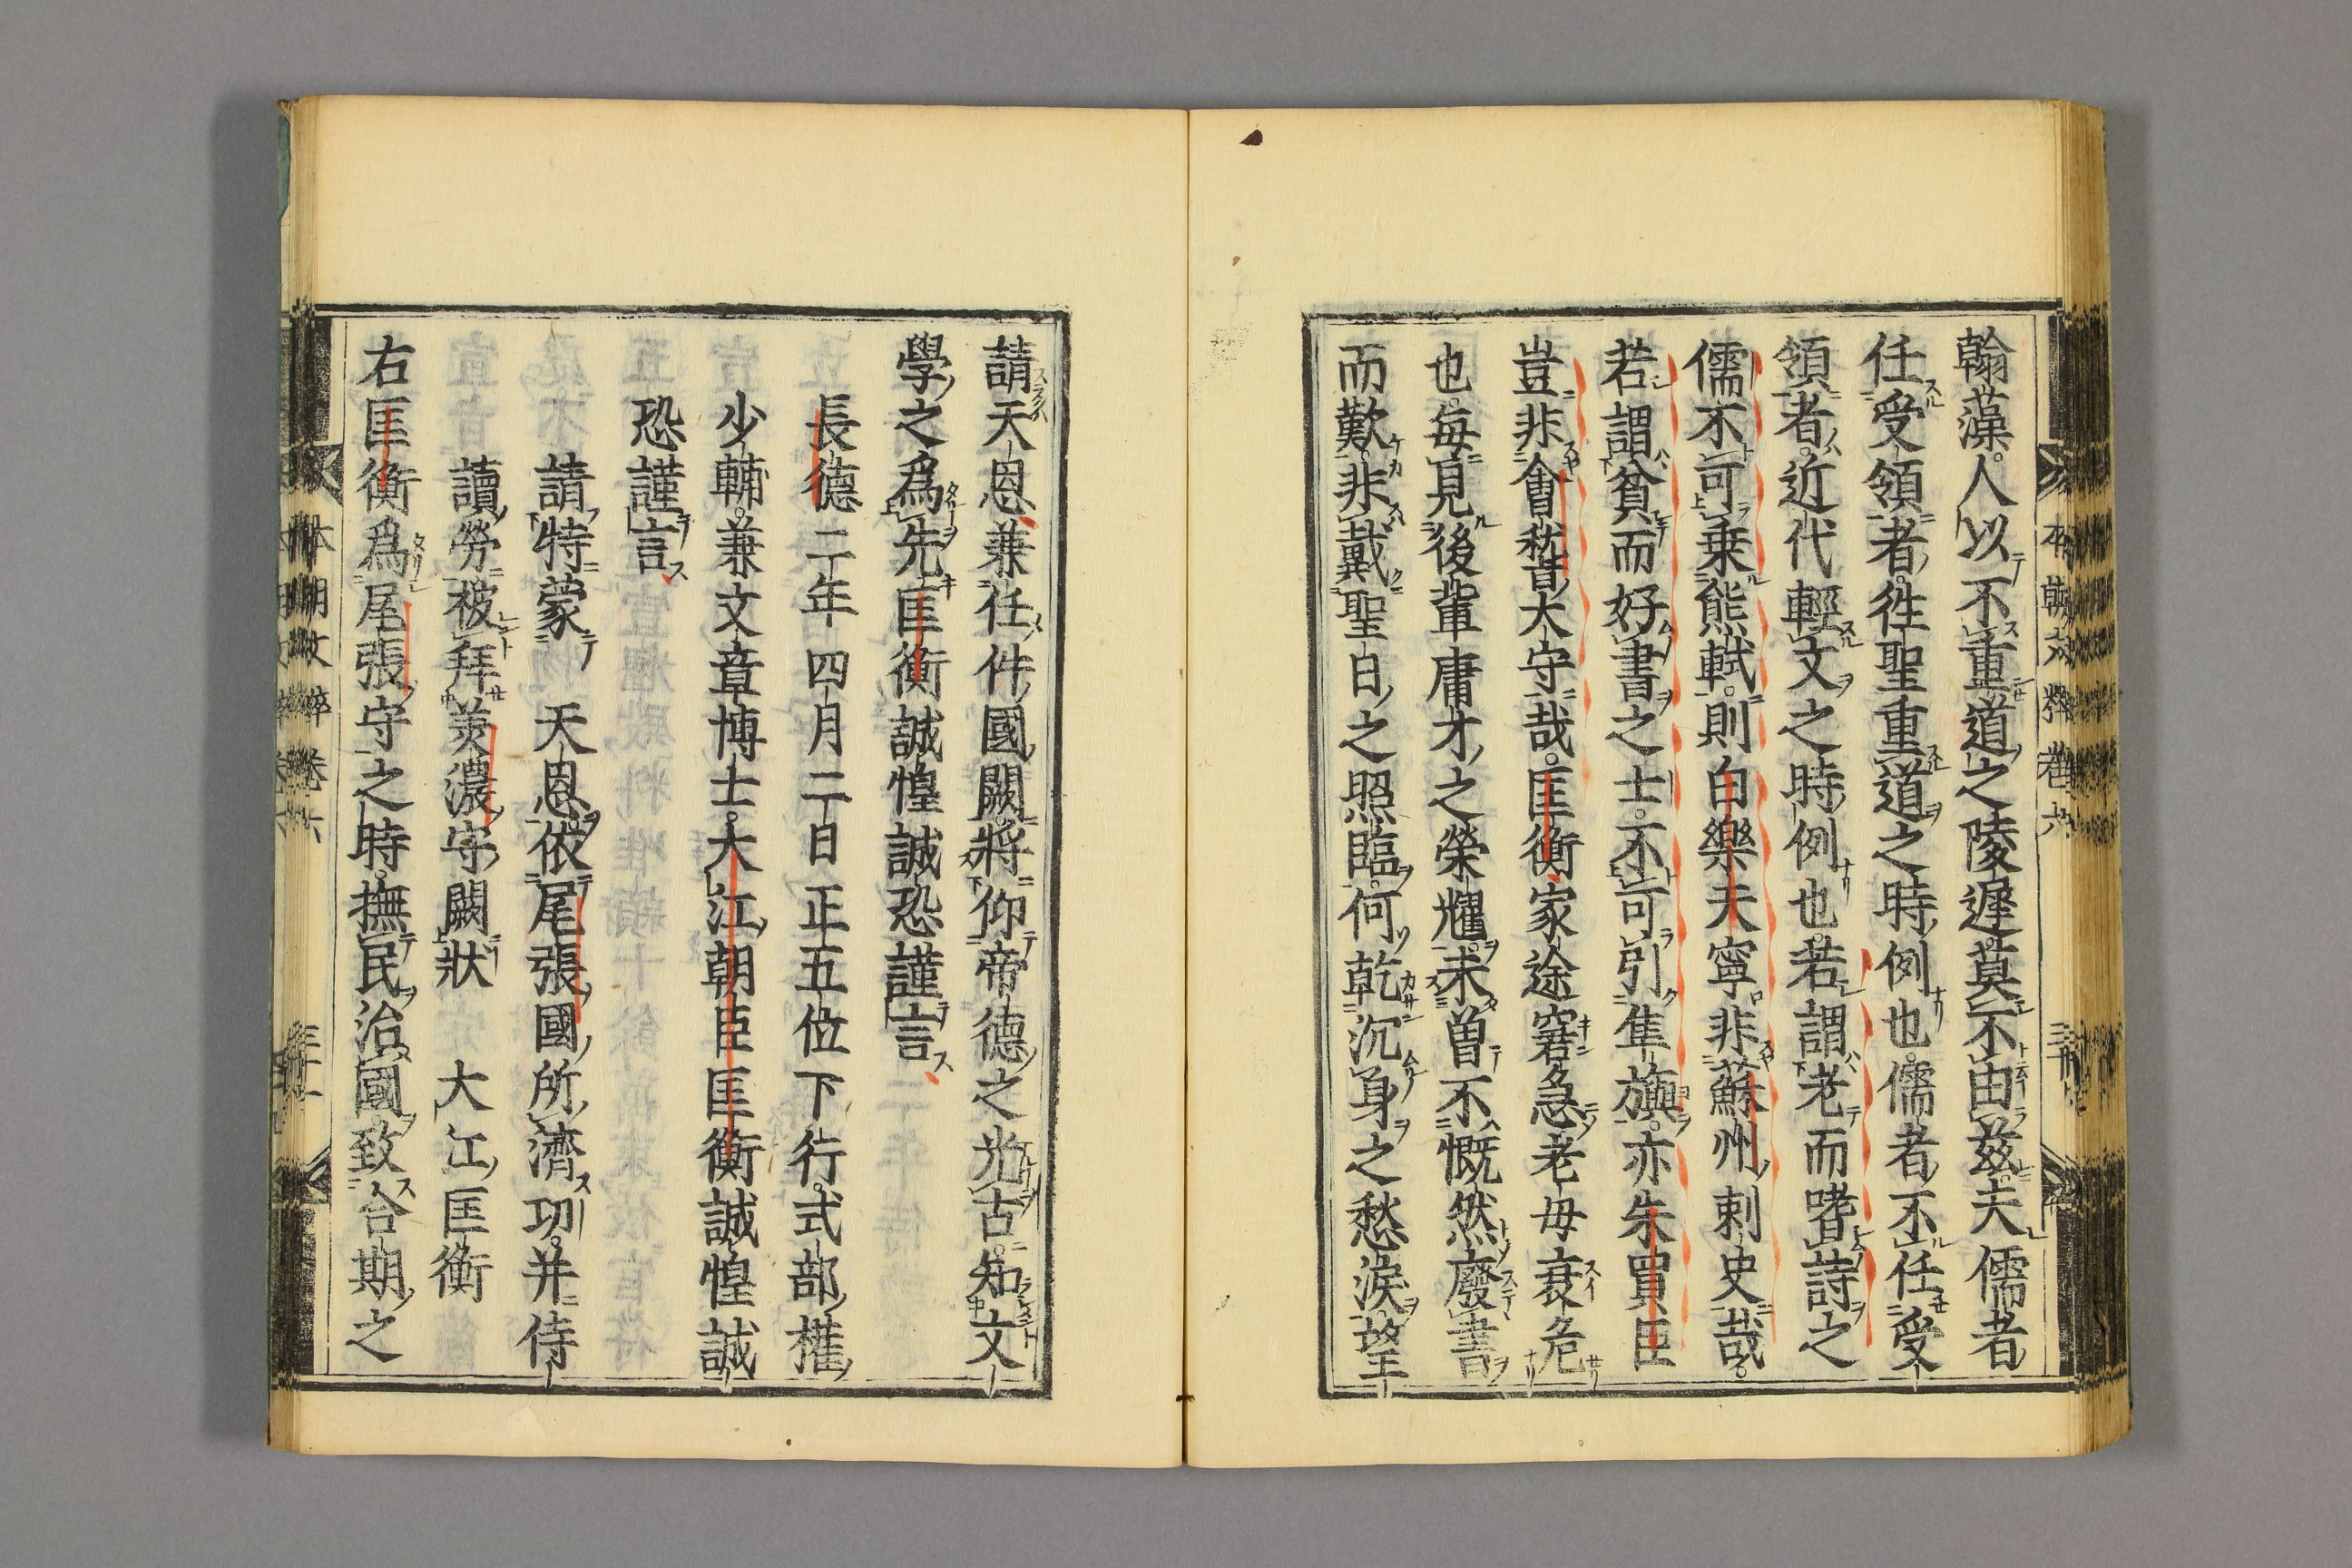 翰藻人以不重道之陵遲莫不由茲夫儒者
任受領者徃聖重道之時例也儒者不任受
領者近代輕文之時例也若謂老而嗜詩之
儒不可乗熊軾則白樂天寧非蘇州刺史哉
若謂貧而好書之士不可引隼旟亦朱買臣
豈非會稽太守哉匡衡家途窘急老母衰危
也毎見後輩庸才之榮耀未曽不慨然廢書
而歎非戴聖日之照臨何乾沉身之愁淚望
請天恩兼任件國闕將仰帝德之光古知文
學之爲先匡衡誠惶誠恐謹言
長德二年四月二日正五位下行式部權
少輔兼文章博士大江朝臣匡衡誠惶誠
恐謹言
請特蒙 天恩依尾張國所濟功并侍
讀勞被拜美濃守闕狀 大江匡衡
右匡衡爲尾張守之時撫民治國致合期之
本朝文粹卷六
三十
本朝文粹卷六
三十一